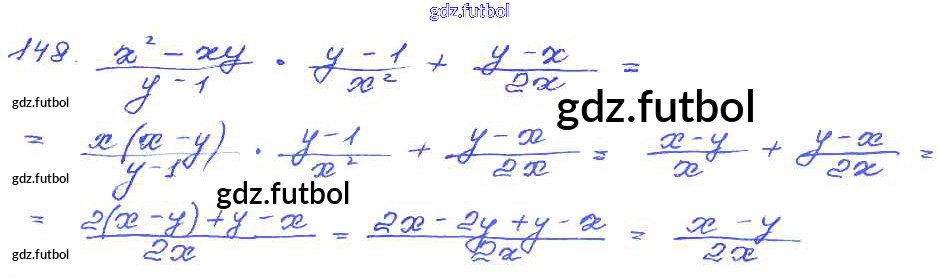 gdz.futbol
148. \frac{x^2 - xy}{y - 1} \cdot \frac{y - 1}{x^2} + \frac{y - x}{2x} =
gdz.futbol gdz.futbol
= \frac{x(x - y)}{y - 1} \cdot \frac{y - 1}{x^2} + \frac{y - x}{2x} = \frac{x - y}{x} + \frac{y - x}{2x} =
gdz.futbol gdz.futbol
= \frac{2(x - y) + y - x}{2x} = \frac{2x - 2y + y - x}{2x} = \frac{x - y}{2x}
gdz.futbol